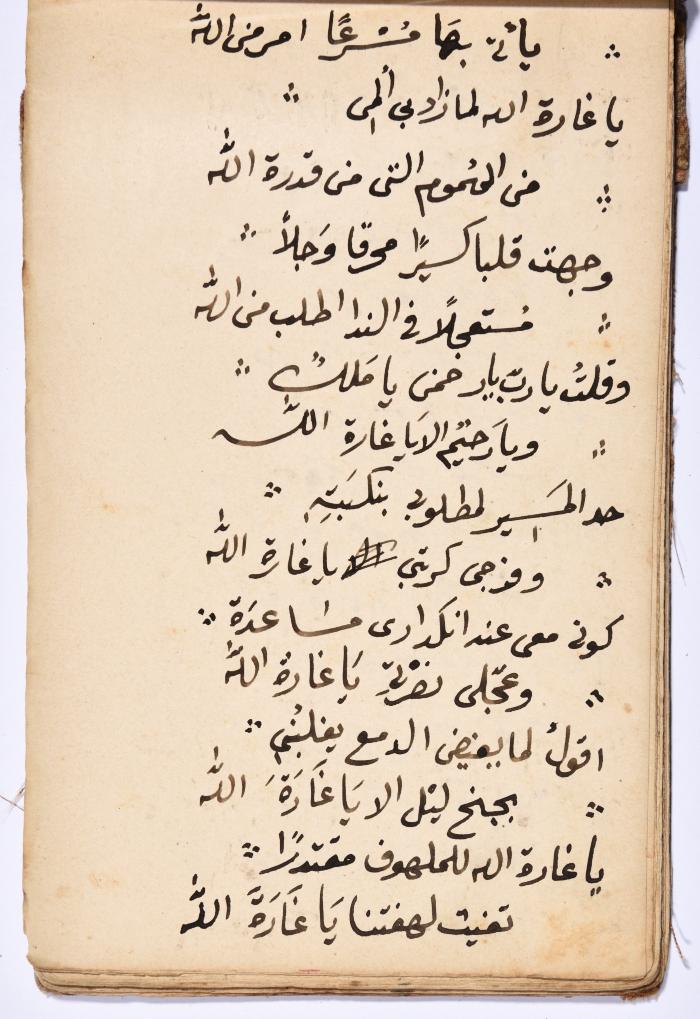 يأتي بها مُسْرعًا امر من اللهُ
يا غارة الله لما زاد بي ألمي
من الهُموم التي من قدرة اللهُ
وجهت قلبا كسيرًا محرقا وَجلاً
مُستعجلاً في الندا اطلب من اللهُ
وقلتُ يا ربّ يا رحمن يا مَلكُ
ويا رَحيُم الا يَا غارة الله
المَسير لمطلوبي بنكسَبَتِهِ
وفرجي كربتي يا غارة اللهُ
كوني معي عند انكداري مسَاعدَة
وعَجّلي نصْرَتي يَا غارةُ اللهُ
اقولُ لما يفيض الدمع يغلبُني
بجنح ليْل الا يَا غَارَةَ اللهُ
يا غارة الله للملهوف مقتدرًا
تغيث لهفتنا يَا غَارَةَ اللهُ